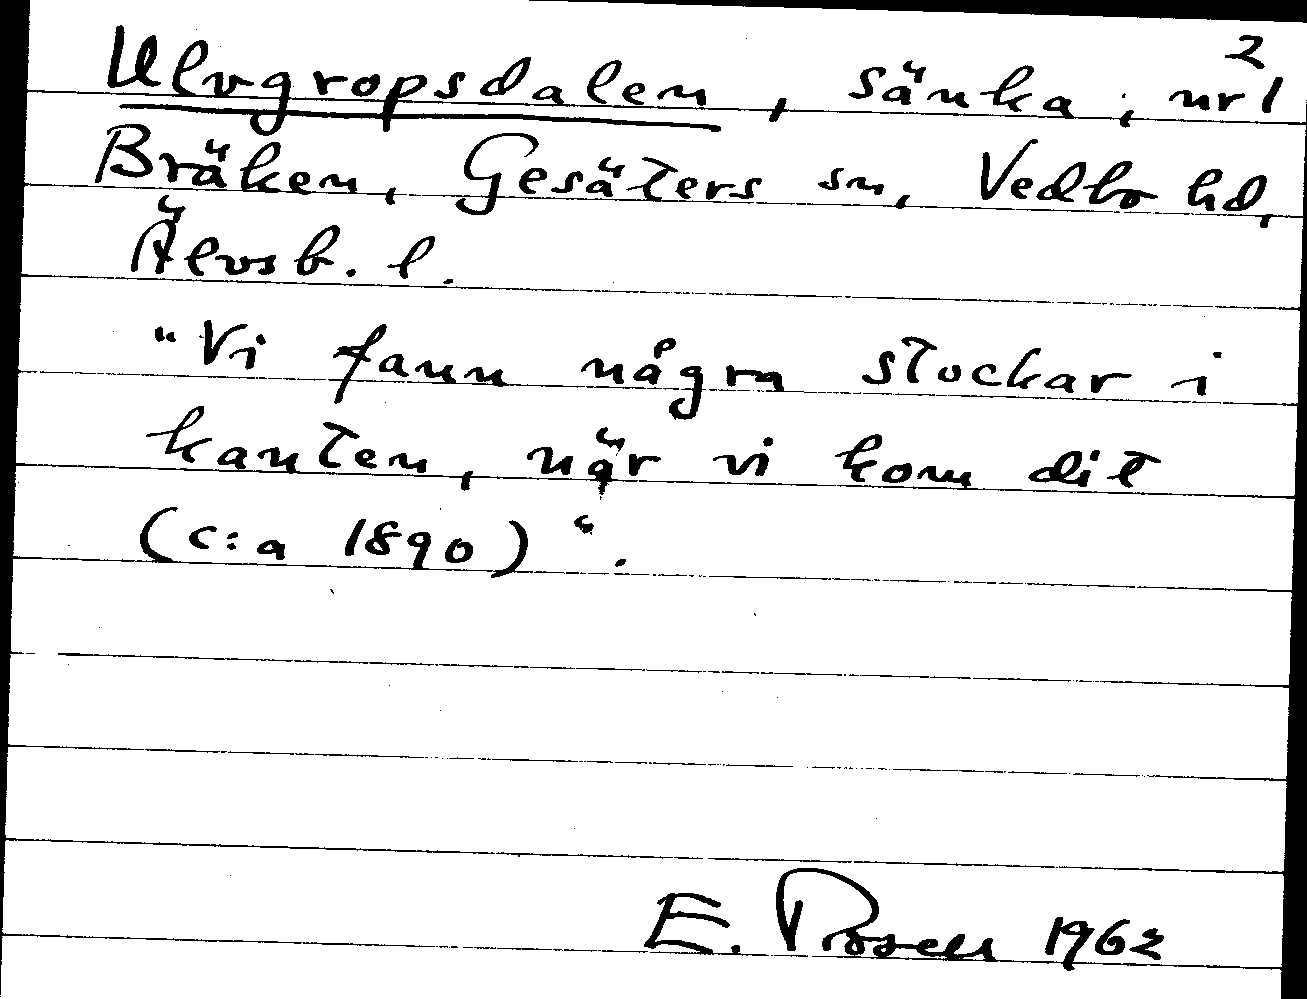 2
Ulvgropsdalen, sänka, nr 1
Bräken, Gesäters sn, Vedbo hd,
Älvsb. l.
"Vi fann några stockar i
kanten, när vi kom dit
(c:a 1890)".
E. Rosell 1962